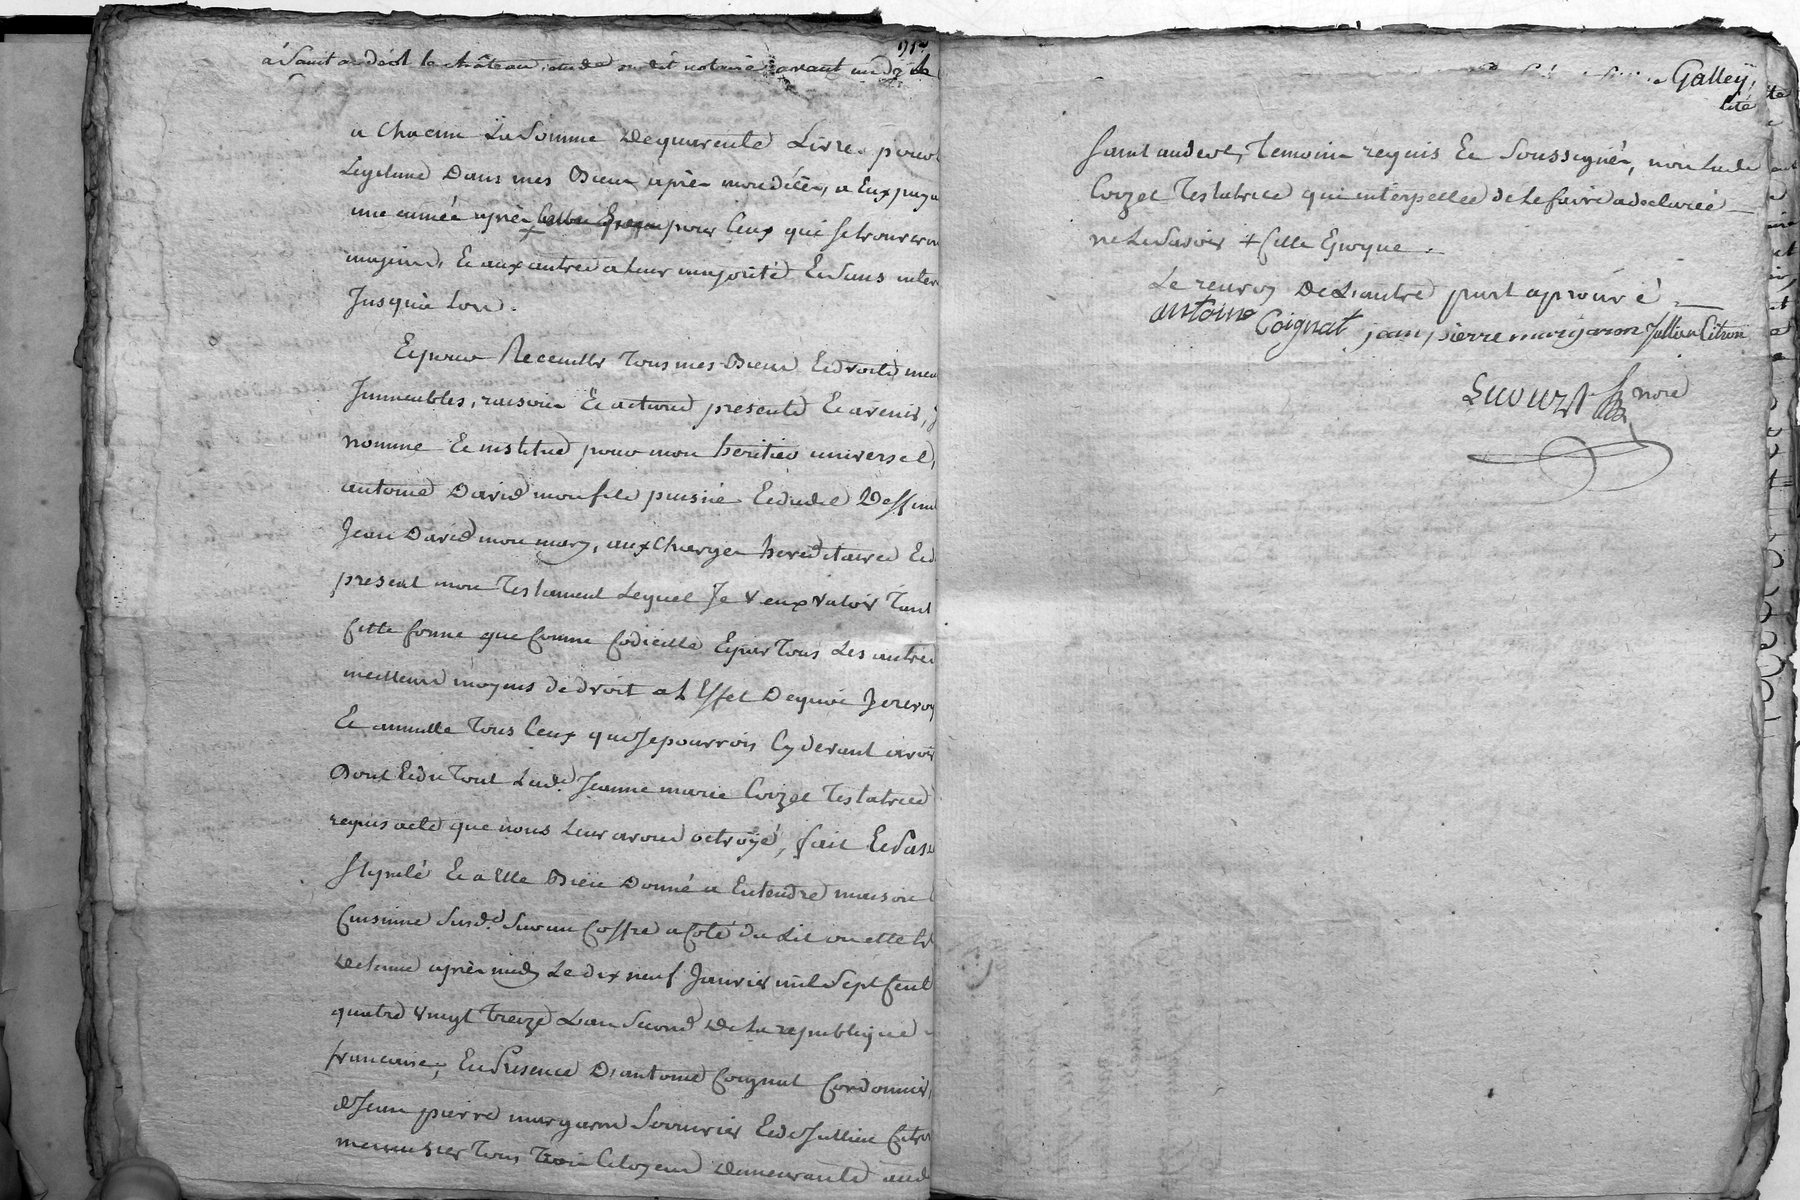 à Saint andéol le château, étude du dit notaire avant midy le
a chacun La Somme De quarente Livre pour
Legitime Dans mes Biens après mon décès, a Eux paya
une année après + pour Ceux qui se trouveron
majeurs, Et aux autres a leur majorité Et sans inter
Jusqu'a Lors.
Et pour Recueillir Tous mes Biens Et droits meu
Immeubles, raisons Et actions presents Et avenir, J
nomme Et institue pour mon heritier universel,
antoine David mon fils puisné Et dudit Deffun
Jean David mon mary, aux Charges hereditaires Et
present mon Testament Lequel Je veux valoir Tant
Cette forme que Comme Codicille Et par Tous Les autres
meilleurs moyens de droit a L'Effet De quoi Je revoq
Et annulle Tous Ceux que Je pourrois Cy devant avoir
Dont Et du Tout Lad. Jeanne marie Coizet Testatrice
requis acte que nous Leur avons octroyé, fait Et Passé
Stipulé Et a Elle Bien Donné a Entendre maison
Cuisinne Susd. Sur un Coffre a Coté du Lit ou elle Est
Detenue après midy Le dix neuf Janvier mil Sept Cent
quatre vingt Treize L'an Second De La republique
francaise, En Presence D'antoine Coignat Cordonnier,
de Jean pierre margaron Serrurier Et de Jullien Citron
menuisier Tous Trois Citoyens demeurants aud
Galley,
Saint andeol, Temoins requis Et Soussignés, non Lade
Coizet Testatrice qui interpellée de Le faire a declaré
ne Le Savoir + Cette Epoque.
Le renvoy De L'autre part aprouvé
antoine Coignat jean pierre margaron Jullien Citron
nore